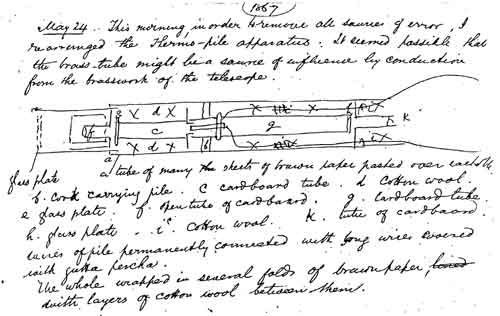 1867
May 24. This morning, in order to remove all sources of error, I
rearranged the Thermo-pile apparatus. It seemed possible that
the brass tube might be a source of influence by conduction
from the brasswork of the telescope.
x d x
c
x d x
g
k
glass plate
a tube of many sheets of brown paper pasted over each other
b. cork carrying pile. c cardboard tube. d Cotton wool.
e glass plate. f. open tube of cardboard. g. Cardboard tube
h. glass plate. i. Cotton wool. k. tube of cardboard
wires of pile permanently connected with long wires covered
with gutta percha.
The whole wrapped in several folds of brown paper,
with layers of cotton wool between them.